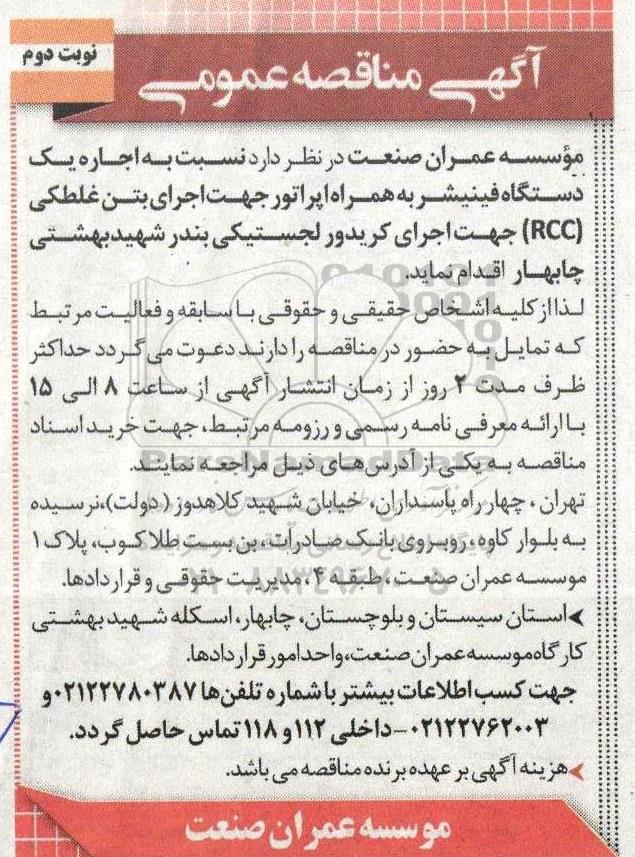 نوبت دوم
آگهی مناقصه عمومی
مؤسسه عمران صنعت در نظر دارد نسبت به اجاره یک
دستگاه فینیشر به همراه اپراتور جهت اجرای بتن غلطکی
(RCC) جهت اجرای کریدور لجستیکی بندر شهید بهشتی
چابهار اقدام نماید.
لذا از کلیه اشخاص حقیقی و حقوقی با سابقه و فعالیت مرتبط
که تمایل به حضور در مناقصه را دارند دعوت می گردد حداکثر
ظرف مدت ۲ روز از زمان انتشار آگهی از ساعت ۸ الی ۱۵
با ارائه معرفی نامه رسمی و رزومه مرتبط، جهت خرید اسناد
مناقصه به یکی از آدرس های ذیل مراجعه نمایند.
تهران ، چهار راه پاسداران، خیابان شهید کلاهدوز (دولت)، نرسیده
به بلوار کاوه، روبروی بانک صادرات، بن بست طلاکوب، پلاک ۱
موسسه عمران صنعت، طبقه ۴، مدیریت حقوقی و قراردادها.
استان سیستان و بلوچستان، چابهار، اسکله شهید بهشتی
کارگاه موسسه عمران صنعت، واحد امور قراردادها.
جهت کسب اطلاعات بیشتر با شماره تلفن ها ۰۲۱۲۲۷۸۰۳۸۷ و
۰۲۱۲۲۷۶۲۰۰۳ - داخلی ۱۱۲ و ۱۱۸ تماس حاصل گردد.
هزینه آگهی بر عهده برنده مناقصه می باشد.
موسسه عمران صنعت
ParsNamadData